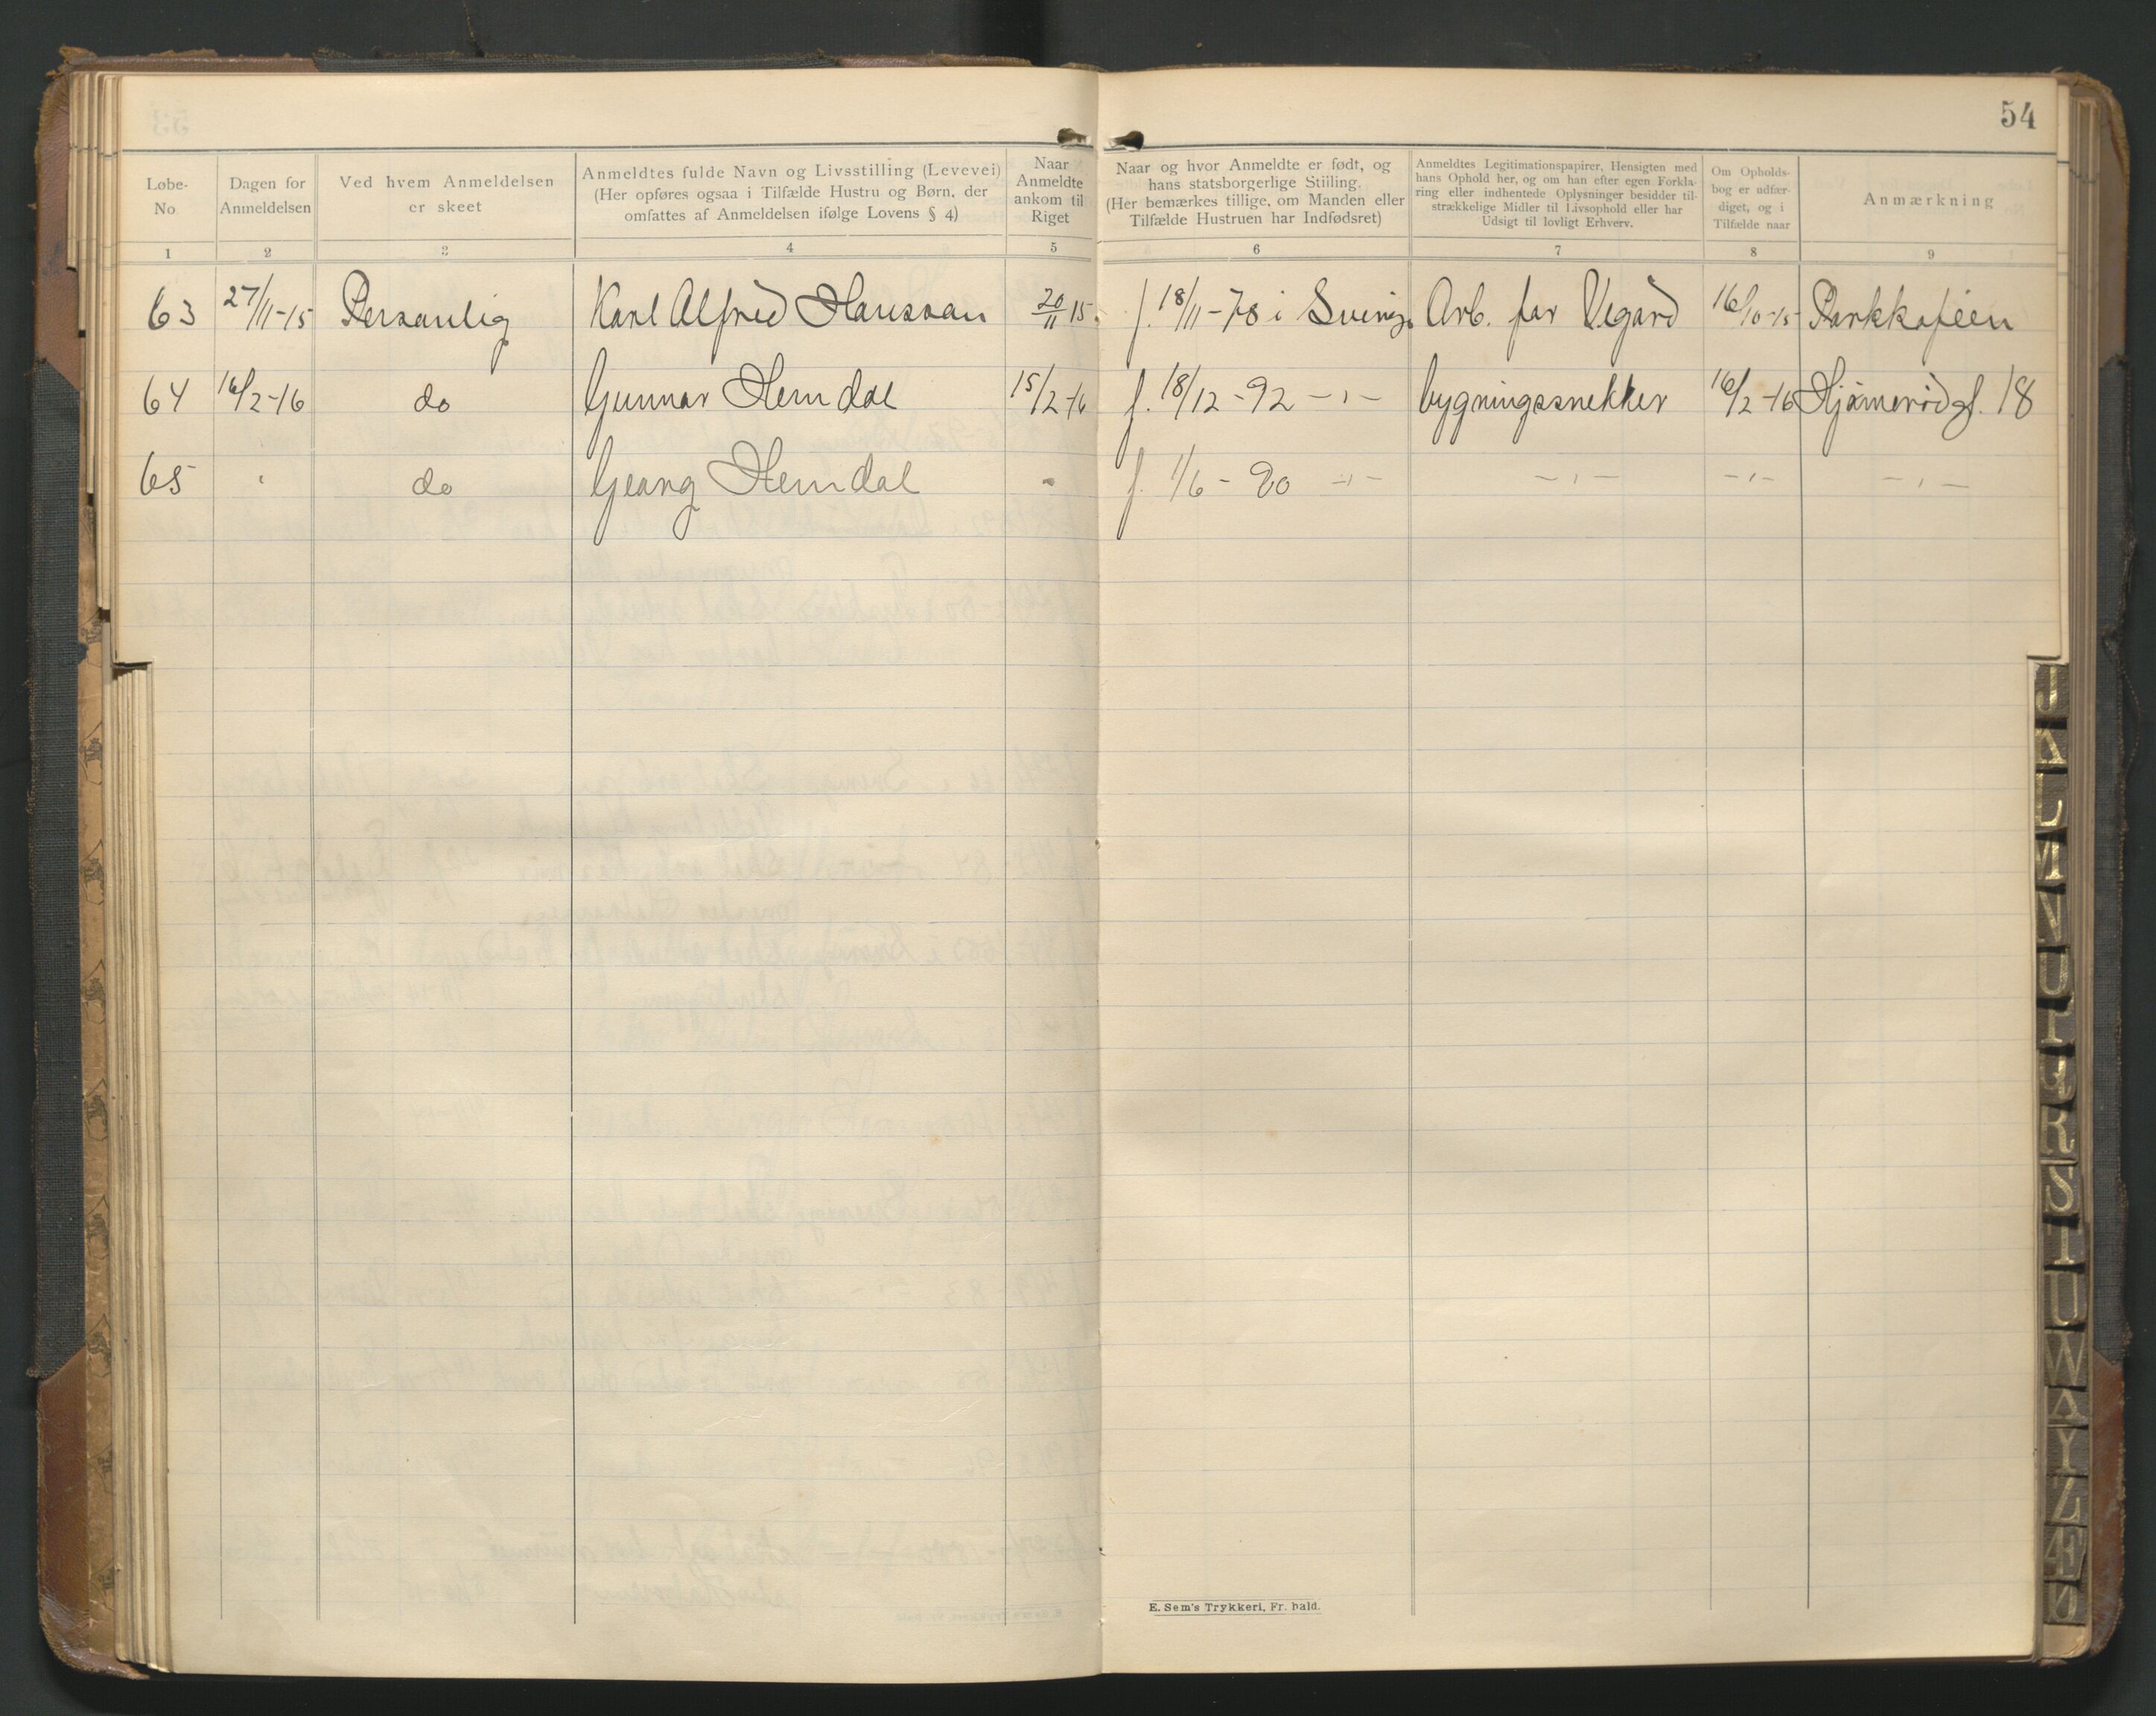 54
Løbe-
No
Dagen for
Anmeldelsen
Ved hvem Anmeldelsen
er skeet
Anmeldtes fulde Navn og Livsstilling (Levevei)
(Her opføres ogsaa i Tilfælde Hustru og Børn, der
omfattes af Anmeldelsen ifølge Lovens § 4)
Naar
Anmeldte
ankom til
Riget
Naar og hvor Anmeldte er født, og
hans statsborgerlige Stiiling.
(Her bemærkes tillige, om Manden eller
Tilfælde Hustruen har Indfødsret)
Anmeldtes Legitimationspapirer, Hensigten med
hans Ophold her, og om han efter egen Forkla-
ring eller indhentede Oplysninger besidder til-
strækkelige Midler til Livsophold eller har
Udsigt til lovligt Erhverv.
Om Opholds-
bog er udfær-
diget, og i
Tilfælde naar
Anmærkning
1 2 3 4 5 6 7 8 9
63 27/11-15 Personlig Karl Alfred Hansson 20/11 15. f. 18/11-78 i Sverige Arb. for Vegård 16/10-15 Parkkaféen
64 16/2-16 do Gunnar Hemdal 15/2-16 f. 18/12-92 -"- bygningssnekker 16/2-16 18
65 " do Georg Hemdal " f. 1/6-90 -"- -"- -"- -"-
E. Sem's Trykkeri, Fr. hald.
J
K
L
M
N
O
P
Q
R
S
T
U
W
X
Y
Z
Æ
Ø